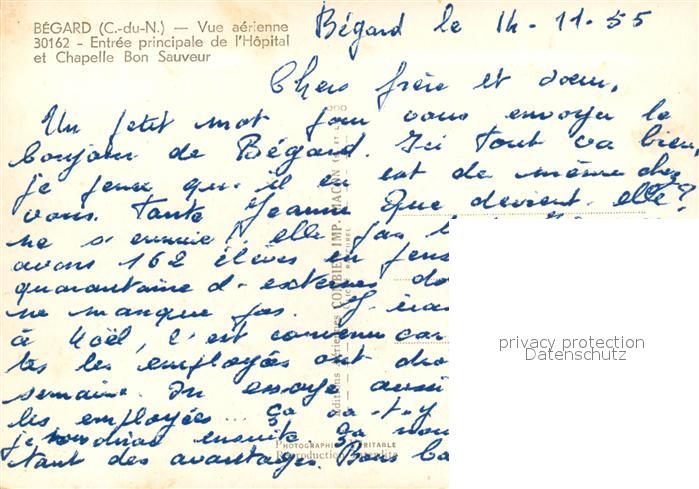 BÉGARD (C.-du-N.) — Vue aérienne
30162 - Entrée principale de l'Hôpital
et Chapelle Bon Sauveur
Bégard le 14-11-55
Chers frère et sœur,
Un petit mot pour vous envoyer le
bonjour de Bégard. Ici tout va bien,
je pense qu'il en est de même chez
vous. Tante Jeanne que devient-elle?
ne s'ennuie t'elle pas
avons 162 élèves en pens
quarantaine d'externes do
ne manque pas. J'irai
à Noël, c'est convenu car
tes les employées ont dro
semaine. On essaye aussi
les employées... ça va-t-y
je voudrai ensuite. Ça
tant des avantages. Bons ba
Editions Aériennes COMBIER IMP. MACON
PHOTOGRAPHIE VÉRITABLE
Reproduction Interdite
privacy protection
Datenschutz